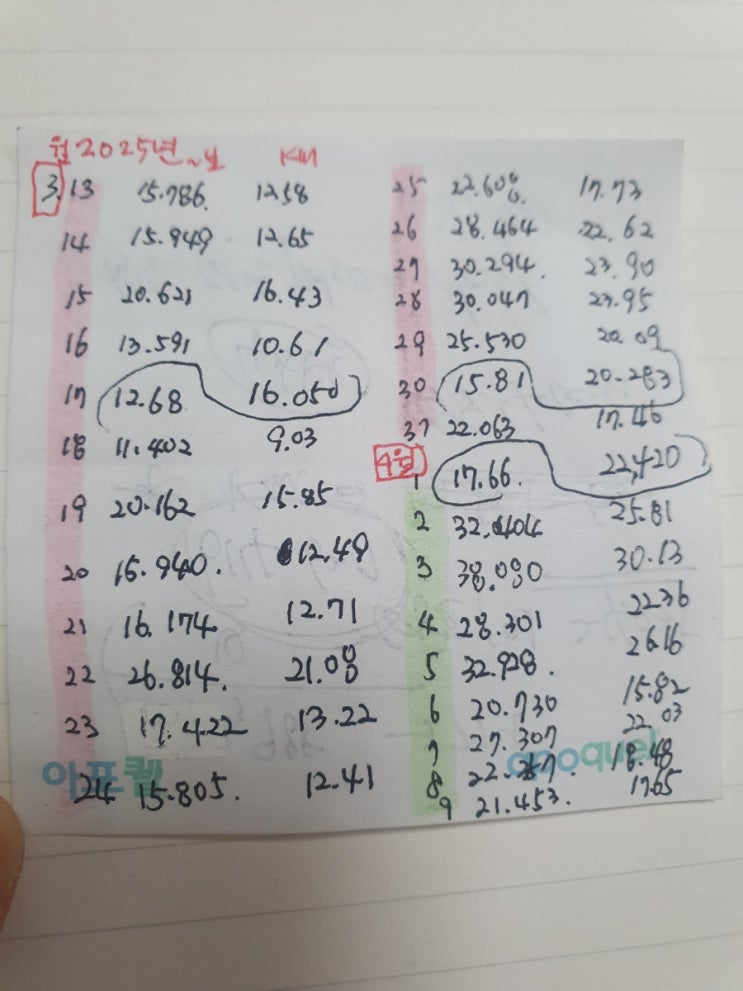 월 2025년 ~ 날 KM
3. 13 15.786. 12.58
14 15.949 12.65
15 20.621 16.43
16 13.591 10.61
17 12.68 16.050
18 11.402 9.03
19 20.162 15.85
20 15.940. 12.49
21 16.174 12.71
22 26.814. 21.08
23 17.422 13.22
24 15.805. 12.41
이포퀠
25 22.608. 17.73
26 28.464 22.62
27 30.294. 23.90
28 30.047 23.95
29 25.530 20.09
30 15.81 20.283
31 22.063 17.46
4월
1 17.66. 22,420
2 32.404 25.81
3 38.080 30.13
4 28.301 22.36
5 32.928. 26.16
6 20.730 15.82
7 27.307 22.03
8 18.48
9 21.453. 17.65
apoquel